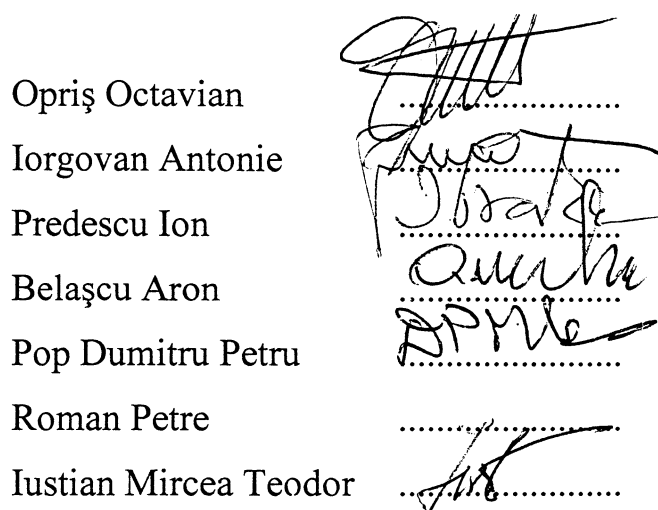 Opriş Octavian ......................
Iorgovan Antonie ......................
Predescu Ion ......................
Belaşcu Aron ......................
Pop Dumitru Petru ......................
Roman Petre ......................
Iustian Mircea Teodor ......................